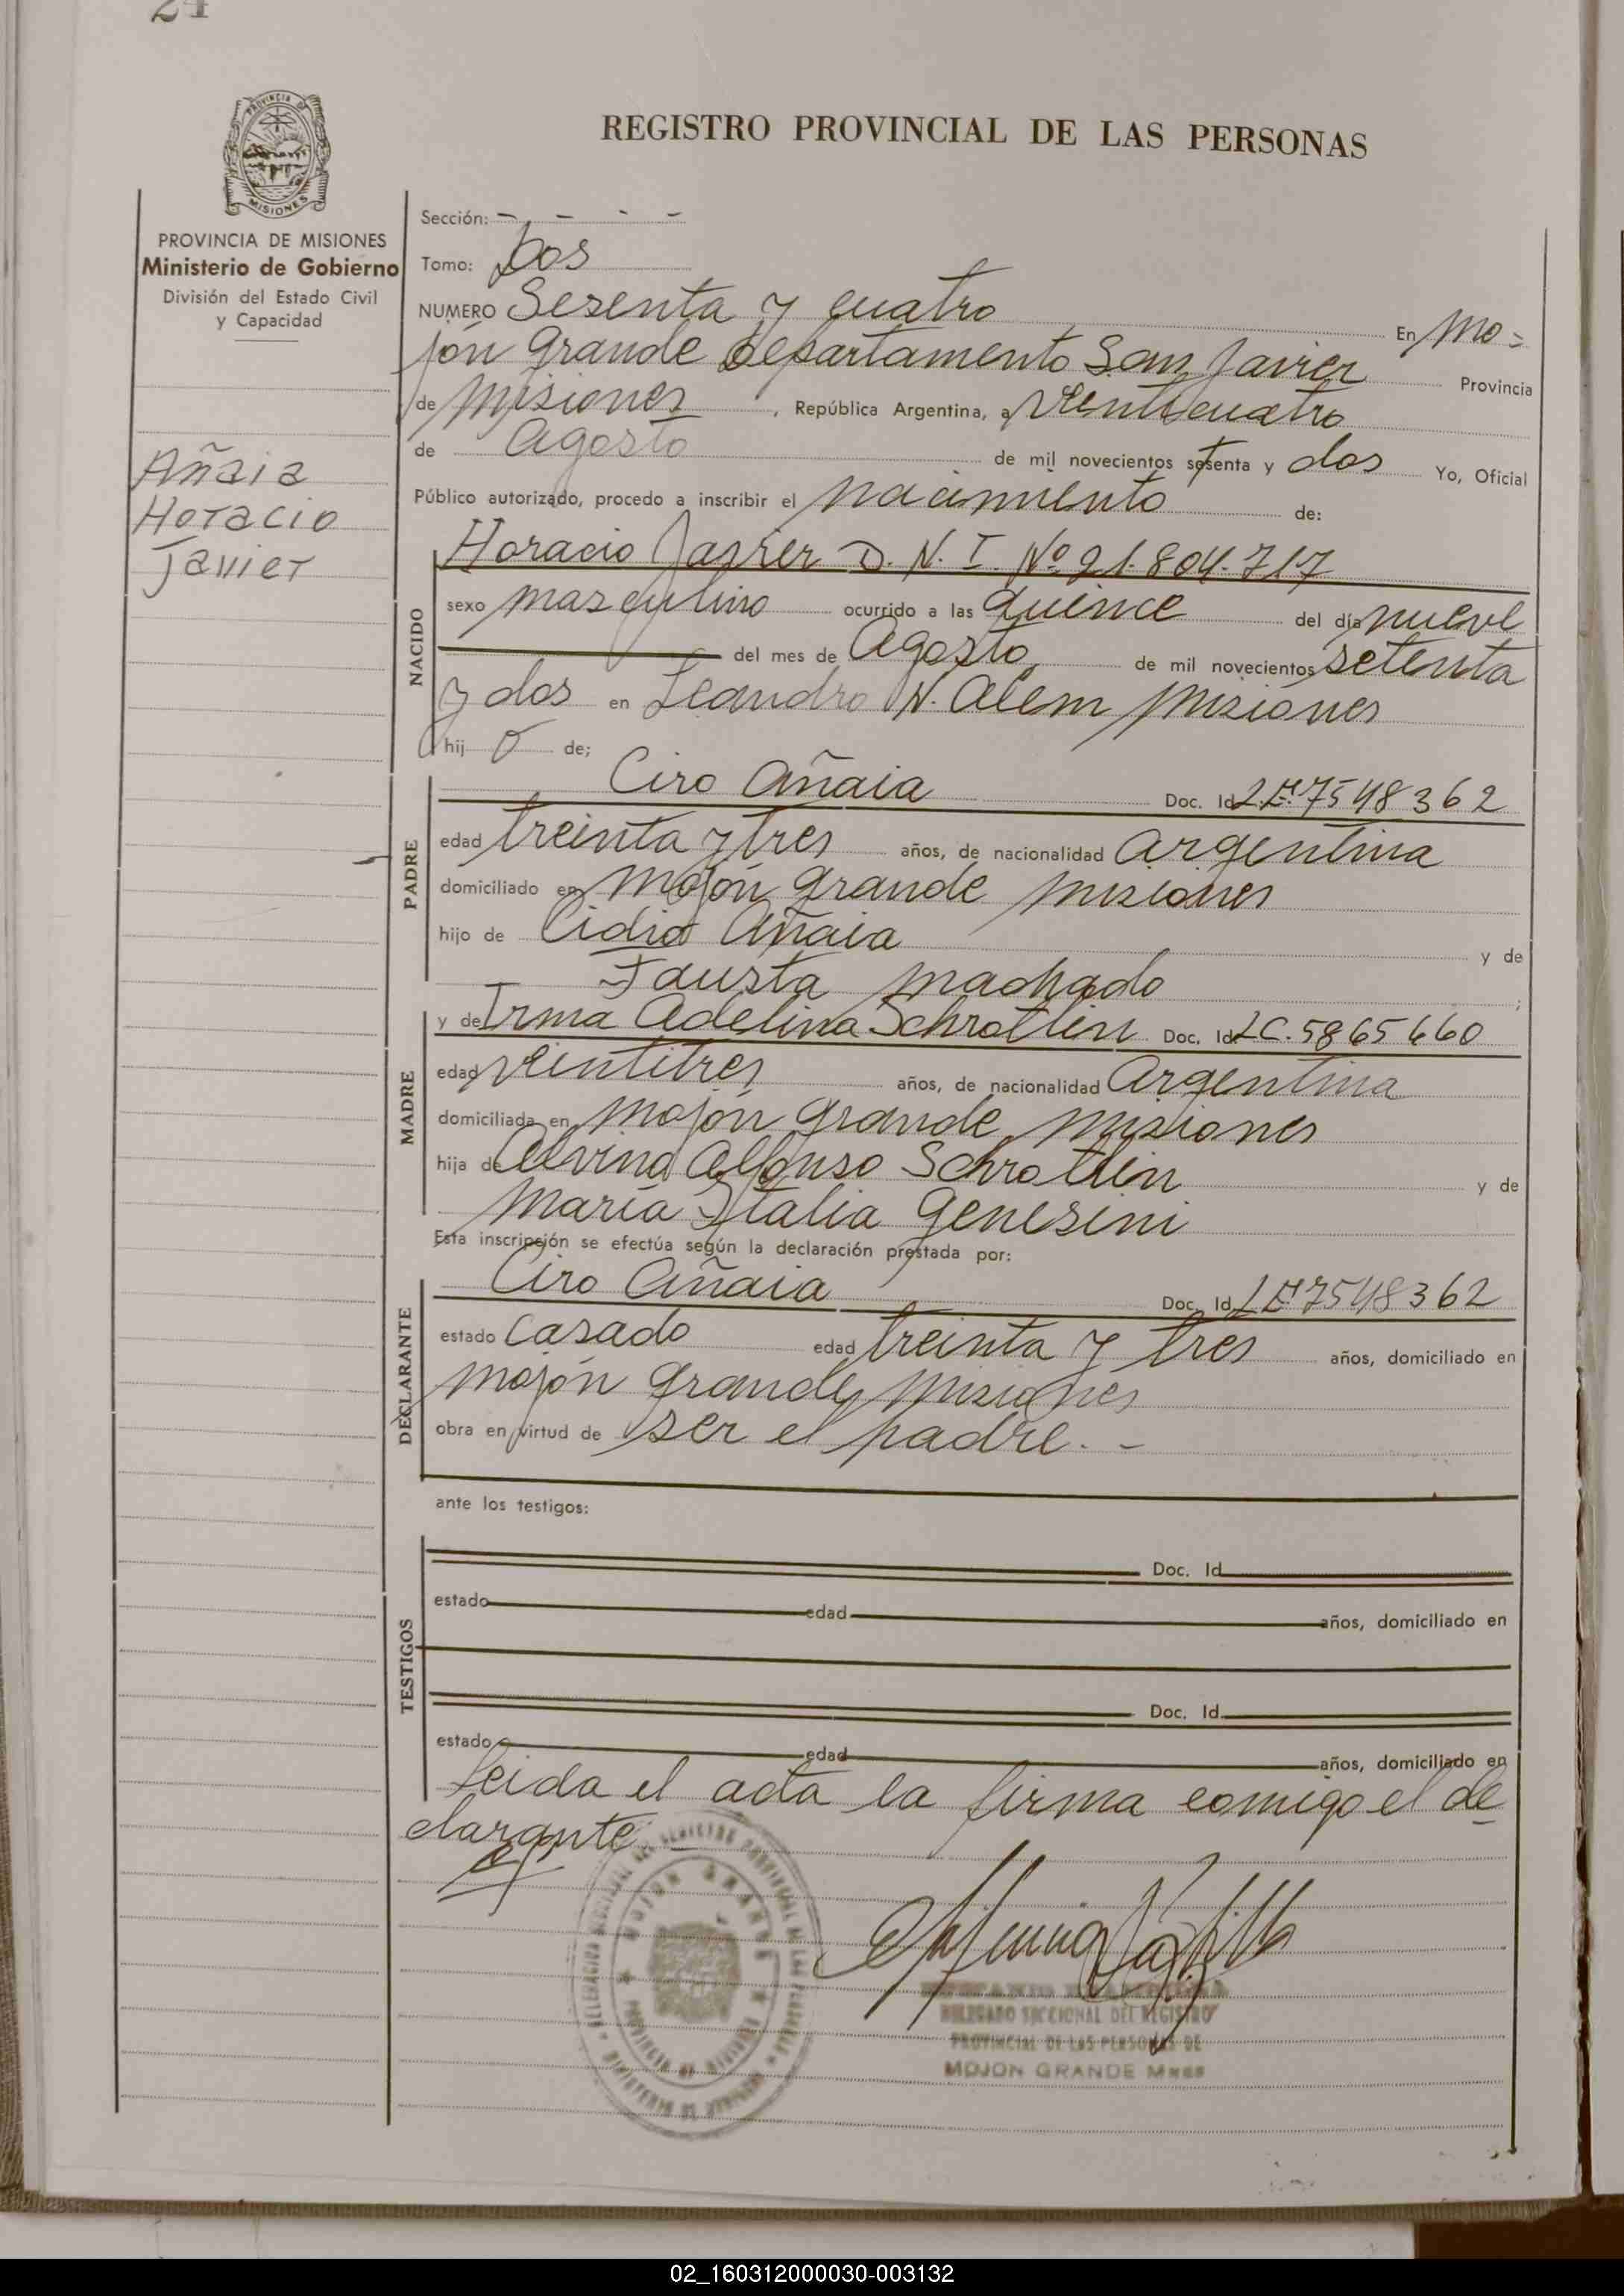 24
REGISTRO PROVINCIAL DE LAS PERSONAS
PROVINCIA DE MISIONES
Ministerio de Gobierno
División del Estado Civil
y Capacidad
Añaia
Horacio
Javier
Sección: - - - -
Tomo: Dos
NUMERO Sesenta y cuatro En Mo=
jón Grande Departamento San Javier Provincia
de Misiones, República Argentina, a Veinticuatro
de Agosto de mil novecientos setenta y dos Yo, Oficial
Público autorizado, procedo a inscribir el nacimiento de:
NACIDO
Horacio Javier D.N.I. Nº 21.804.717
sexo masculino ocurrido a las quince del día nueve
del mes de Agosto, de mil novecientos setenta
y dos en Leandro N. Alem Misiones
hij o de;
PADRE
Ciro Añaia Doc. Id L.E. 7548362
edad treinta y tres años, de nacionalidad Argentina
domiciliado en Mojón Grande Misiones
hijo de Cidio Añaia y de
Fausta Machado ;
MADRE
y de Irma Adelina Schrotlin Doc. Id LC. 5865660
edad veintitres años, de nacionalidad Argentina
domiciliada en Mojón Grande Misiones
hija de Alvino Alfonso Schrotlin y de
María Italia Genesini
Esta inscripción se efectúa según la declaración prestada por:
DECLARANTE
Ciro Añaia Doc. Id LE 7548362
estado casado edad treinta y tres años, domiciliado en
Mojón Grande Misiones
obra en virtud de ser el padre.-
ante los testigos:
TESTIGOS
Doc. Id
estado edad años, domiciliado en
Doc. Id
estado edad años, domiciliado en
Leida el acta la firma comigo el de
clarante
MOJON GRANDE
DELEGADO SECCIONAL DEL REGISTRO
PROVINCIAL DE LAS PERSONAS DE
MOJON GRANDE Mnes
02_160312000030-003132